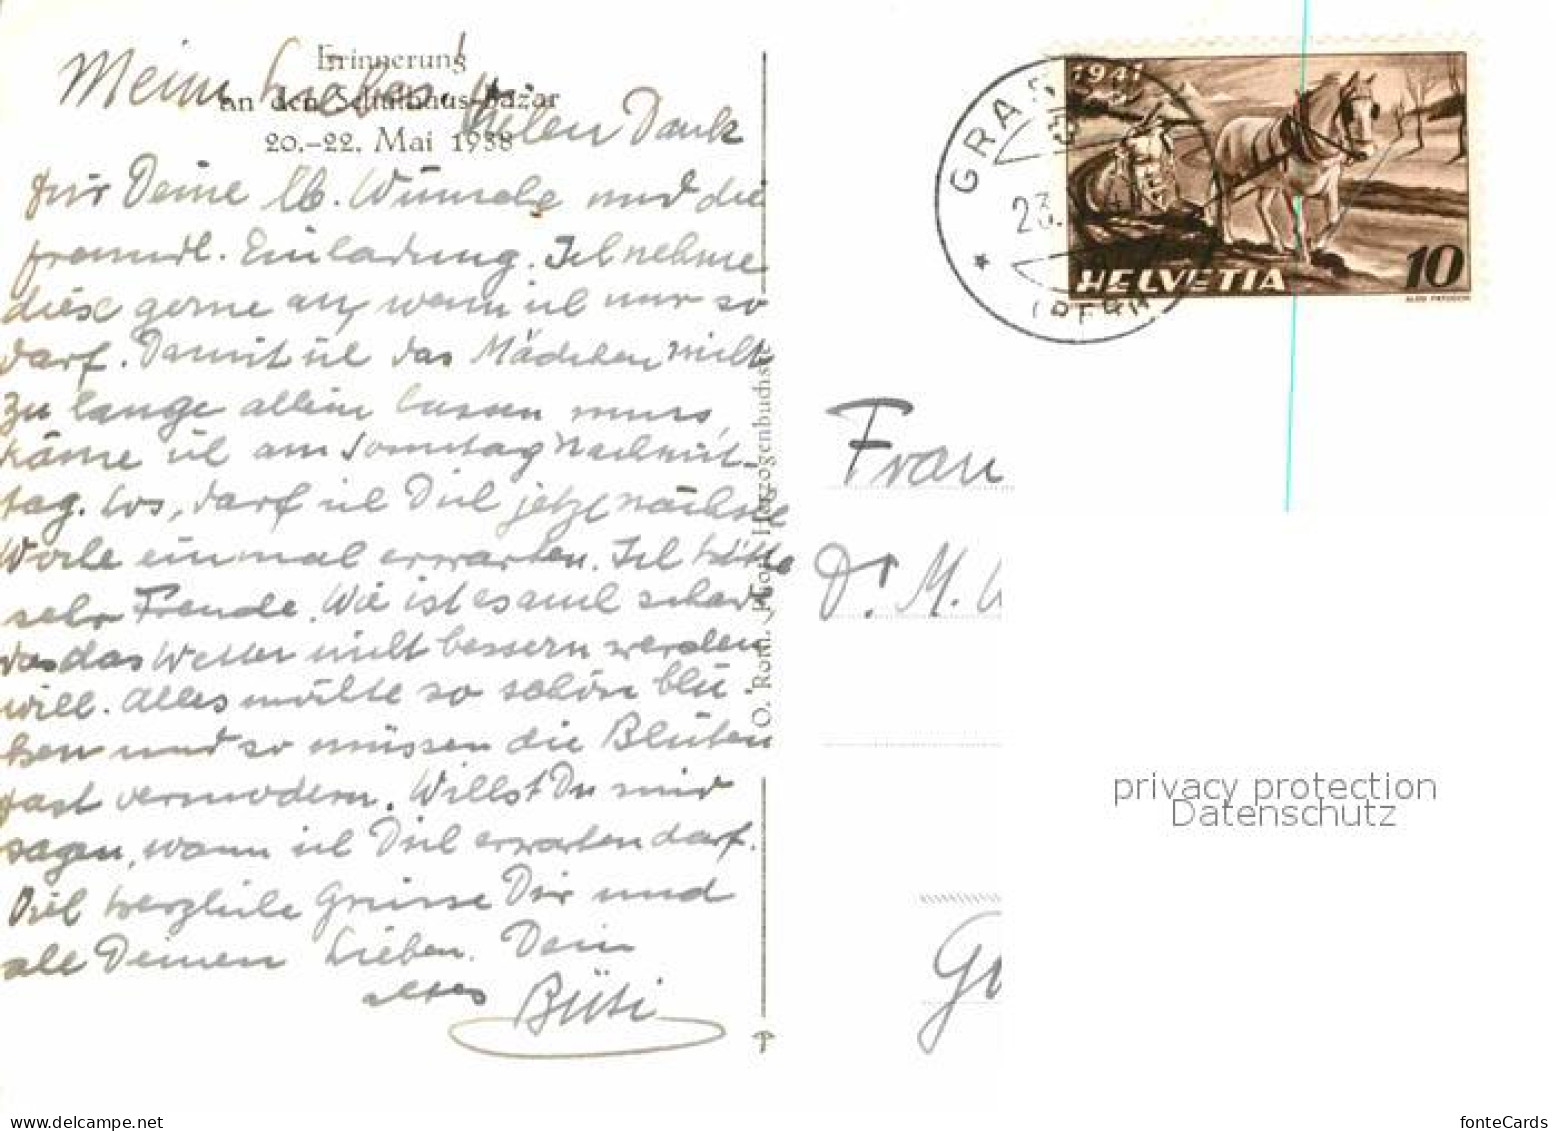 Erinnerung
an den Schulhaus-Bazar
20.-22. Mai 1938
Meine Liebe. Vielen Dank
für Deine lb. Wünsche und die
freundl. Einladung. Ich nehme
diese gerne an, wenn ich nur so
darf. Damit ich das Mädchen nicht
zu lange allein lassen muss,
käme ich am Sonntag Nachmit-
tag. Los, darf ich Dich jetzt nächste
Woche einmal erwarten. Ich hätte
sehr Freude. Wie ist es auch schade
das das Wetter nicht bessern werden
will. Alles möchte so schön blü-
hen und so müssen die Blüten
fast vermodern. Willst Du mir
sagen, wann ich Dich erwarten darf.
Viel herzliche Grüsse Dir und
all Deinen Lieben. Dein
altes Büti
O. Roth, Phot. Herzogenbuchsee
GRAS
23.
(BERN
1941
HELVETIA
10
Frau
Dr. M. W
privacy protection
Datenschutz
fonteCards